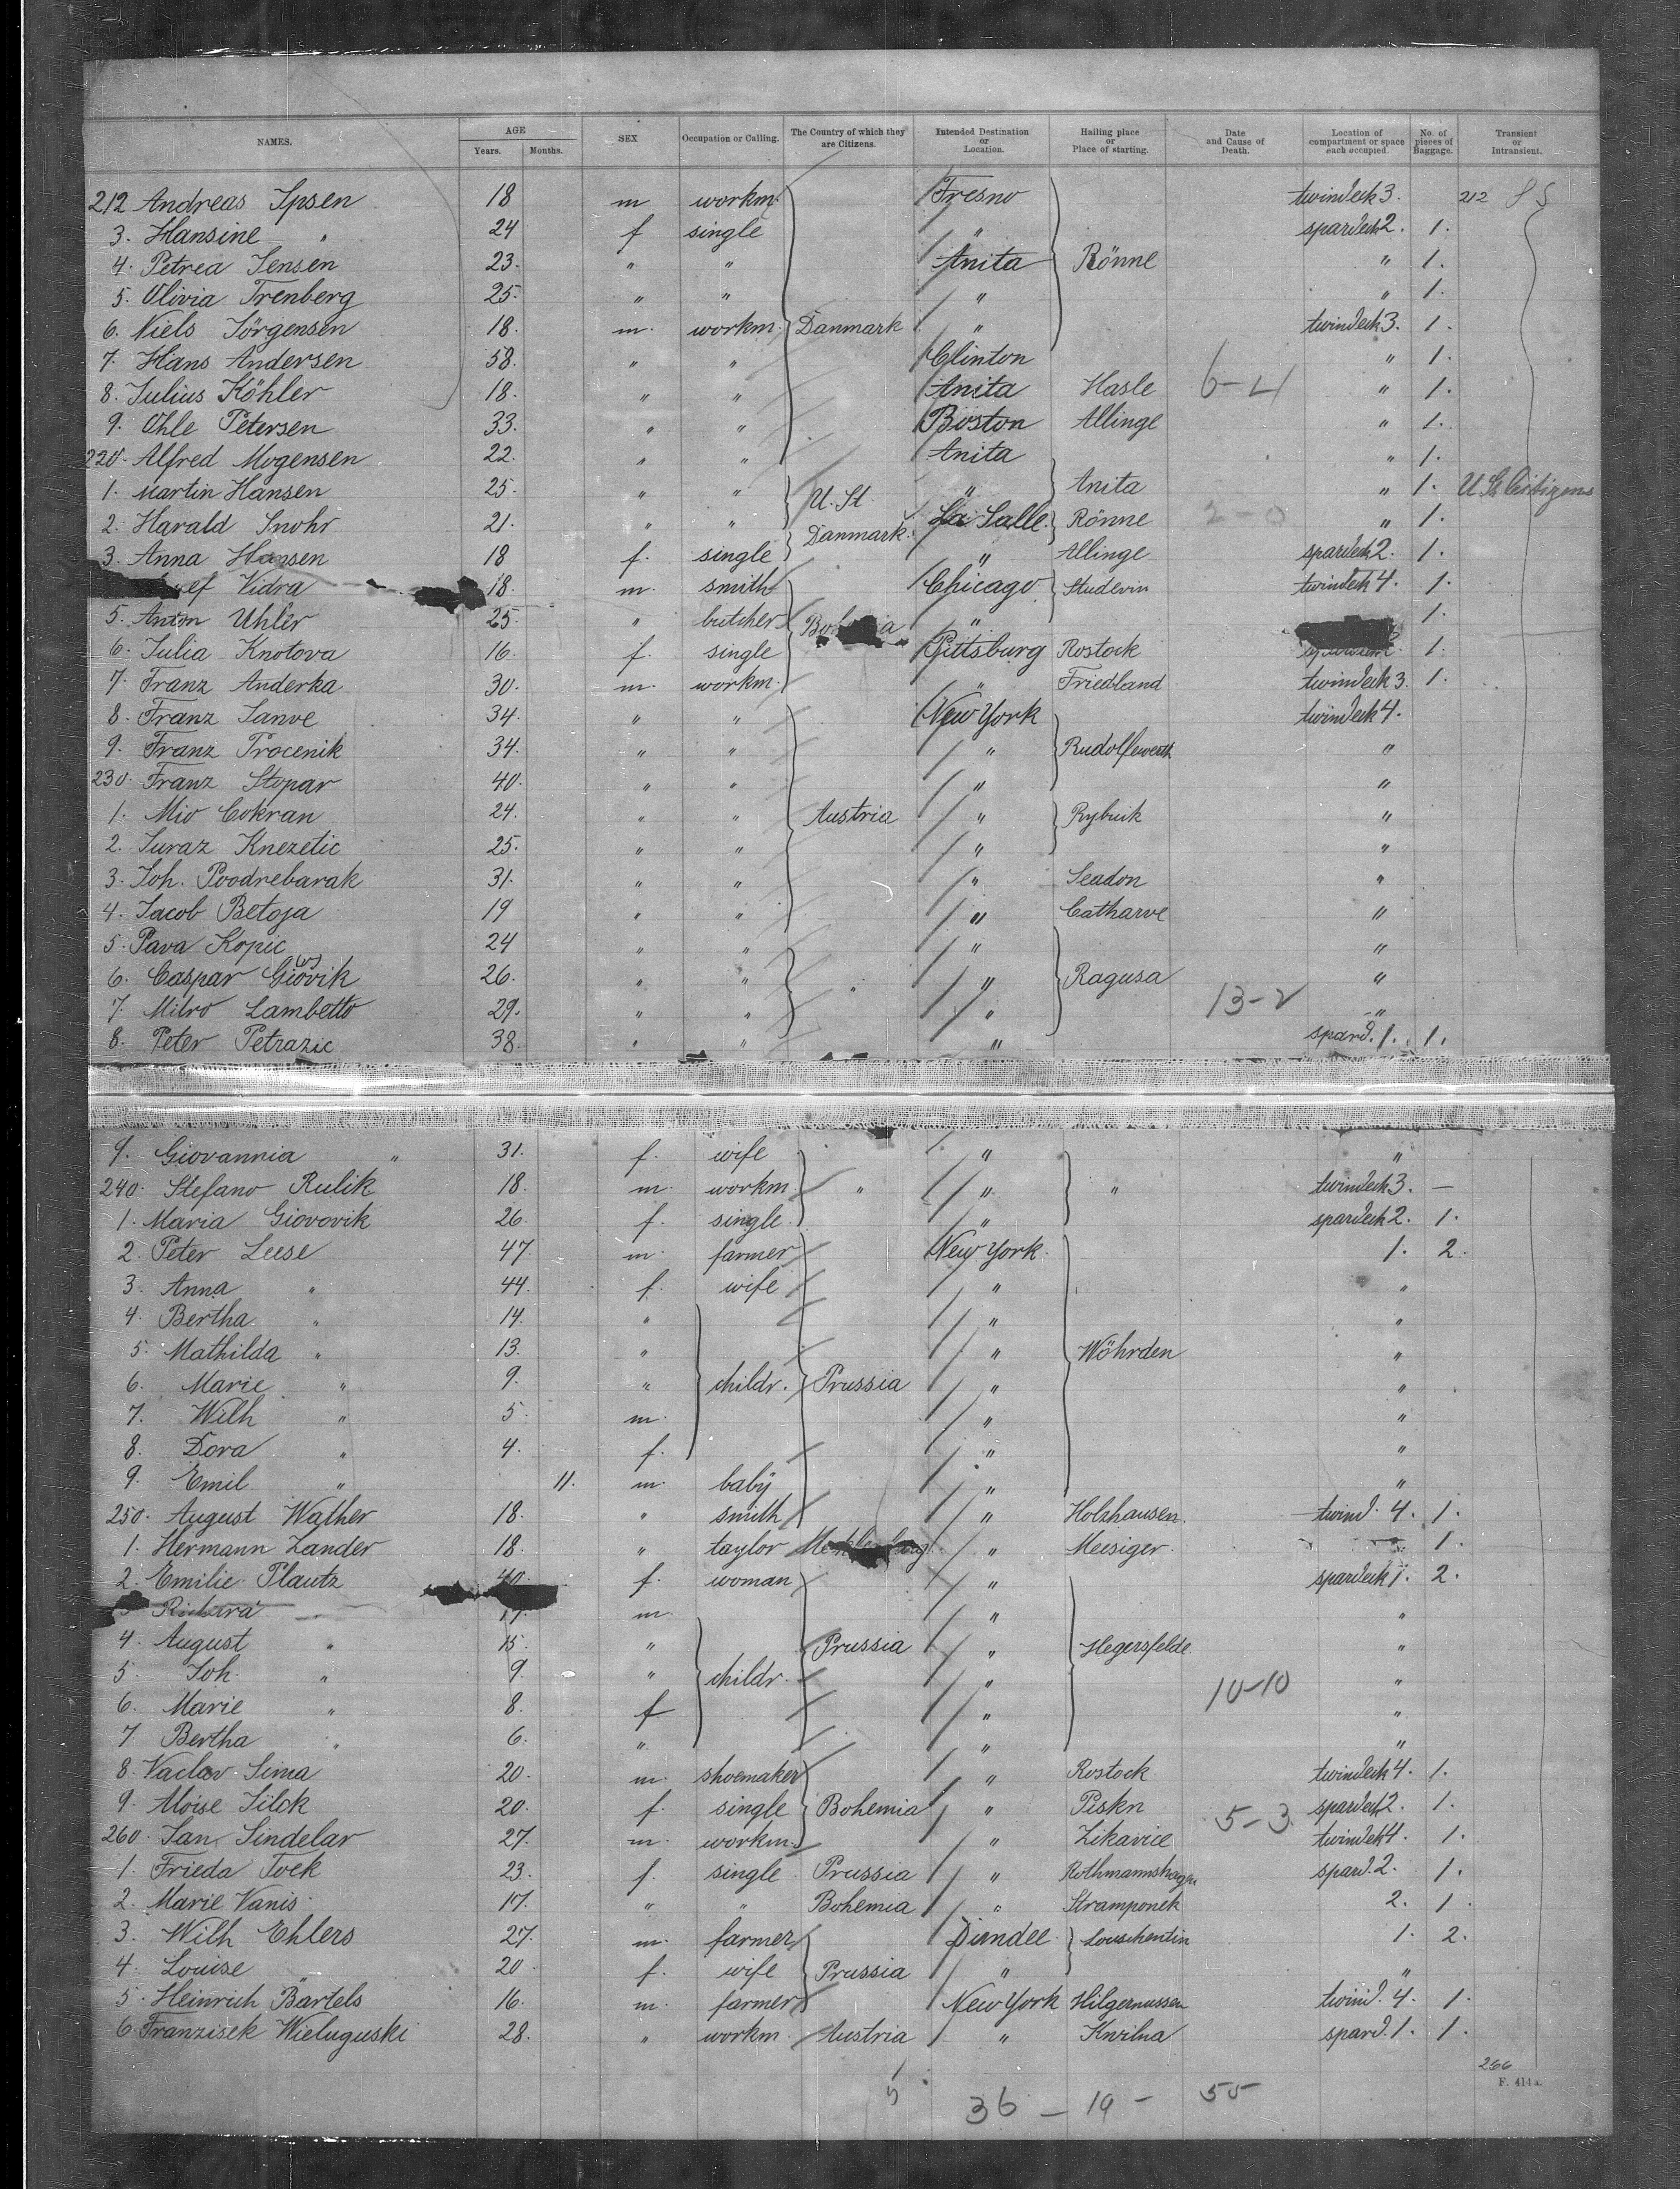 NAMES. AGE Years. Months. SEX Occupation or Calling. The Country of which they are Citizens. Intended Destination or Location. Hailing place or Place of starting. Date and Cause of Death. Location of compartment or space each occupied. No. of pieces of Baggage. Transient or Intransient.
212 Andreas Ipsen 18 m workm. Fresno twindeck 3. 212
3. Hansine " 24 f single " spardeck 2. 1.
4. Petrea Jensen 23. " " Anita Rönne " 1.
5. Olivia Trenberg 25. " " " " 1.
6. Niels Jörgensen 18. m. workm. Danmark " twindeck 3. 1.
7. Hans Andersen 58. " " Clinton " 1.
8. Julius Köhler 18. " " Anita Hasle 6-4 " 1.
9. Ohle Petersen 33. " " Boston Allinge " 1.
220. Alfred Mogensen 22. " " Anita " 1.
1. Martin Hansen 25. " " U. St. " Anita " 1. U St Citizens
2. Harald Snohr 21. " " Danmark. La Salle. Rönne 2-0 " 1.
3. Anna Hansen 18 f. single " Allinge spardeck 2. 1.
ef Vidra 18. m. smith Chicago Studevin twindeck 4. 1.
5. Anton Uhler 25. " butcher " 1.
6. Julia Knotova 16. f. single Pittsburg Rostock 1.
7. Franz Anderka 30. m. workm. " Friedland twindeck 3. 1.
8. Franz Janve 34. " " New York twindeck 4.
9. Franz Procenik 34. " " " Rudolfswerth "
230. Franz Stopar 40. " " " "
1. Mio Cokran 24. " " Austria " Rybnik "
2. Juraz Knezetic 25. " " " "
3. Joh. Poodrebarak 31. " " " Seadon "
4. Jacob Betoja 19 " " " Catharve "
5. Pava Kopic 24 " " " "
6. Caspar Giovik (v) 26. " " " " Ragusa "
7. Mitro Lambetto 29. " " " 13-2 "
8. Peter Petrazic 38. " " " spard. 1. 1.
9. Giovannia " 31. f. wife " "
240. Stefano Rulik 18. m. workm. " " " twindeck 3. —
1. Maria Giovovik 26. f. single. " spardeck 2. 1.
2. Peter Leese 47. m. farmer New York. 1. 2.
3. Anna " 44. f. wife " "
4. Bertha " 14. " " "
5. Mathilda " 13. " " Wöhrden "
6. Marie " 9. " childr. Prussia " "
7. Wilh " 5. m. " "
8. Dora " 4. f. " "
9. Emil " 11. m. baby " "
250. August Wather 18. " smith " Holzhausen. twind. 4. 1.
1. Hermann Zander 18. " taylor " Meesiger. 1.
2. Emilie Plautz 40. f. woman " spardeck 1. 2.
Richard m. " "
4. August " 15. " Prussia " Hegersfelde. "
5. Joh. " 9. " childr. " "
6. Marie " 8. f " 10-10 "
7 Bertha " 6. " " "
8. Vaclav Sima 20. m. shoemaker " Rostock twindeck 4. 1.
9. Aloise Silck 20. f. single Bohemia " Piskn 5-3 spardeck 2. 1.
260. Jan Sindelar 27. m. workm. " Zikavice twindeck 4. 1.
1. Frieda Tock 23. f. single Prussia " Rothmannshagen spard. 2. 1.
2. Marie Vanis 17. " " Bohemia " Stramponek 2. 1.
3. Wilh Ehlers 27. m. farmer Dundee. Louschentin 1. 2.
4. Louise " 20. f. wife Prussia " "
5. Heinrich Bartels 16. m. farmer New York Hilgernussen twind. 4. 1.
6. Franzisek Wieluguski 28. " workm. Austria " Knrilna spard. 1. 1.
266
F. 414 a.
36 - 19 - 55